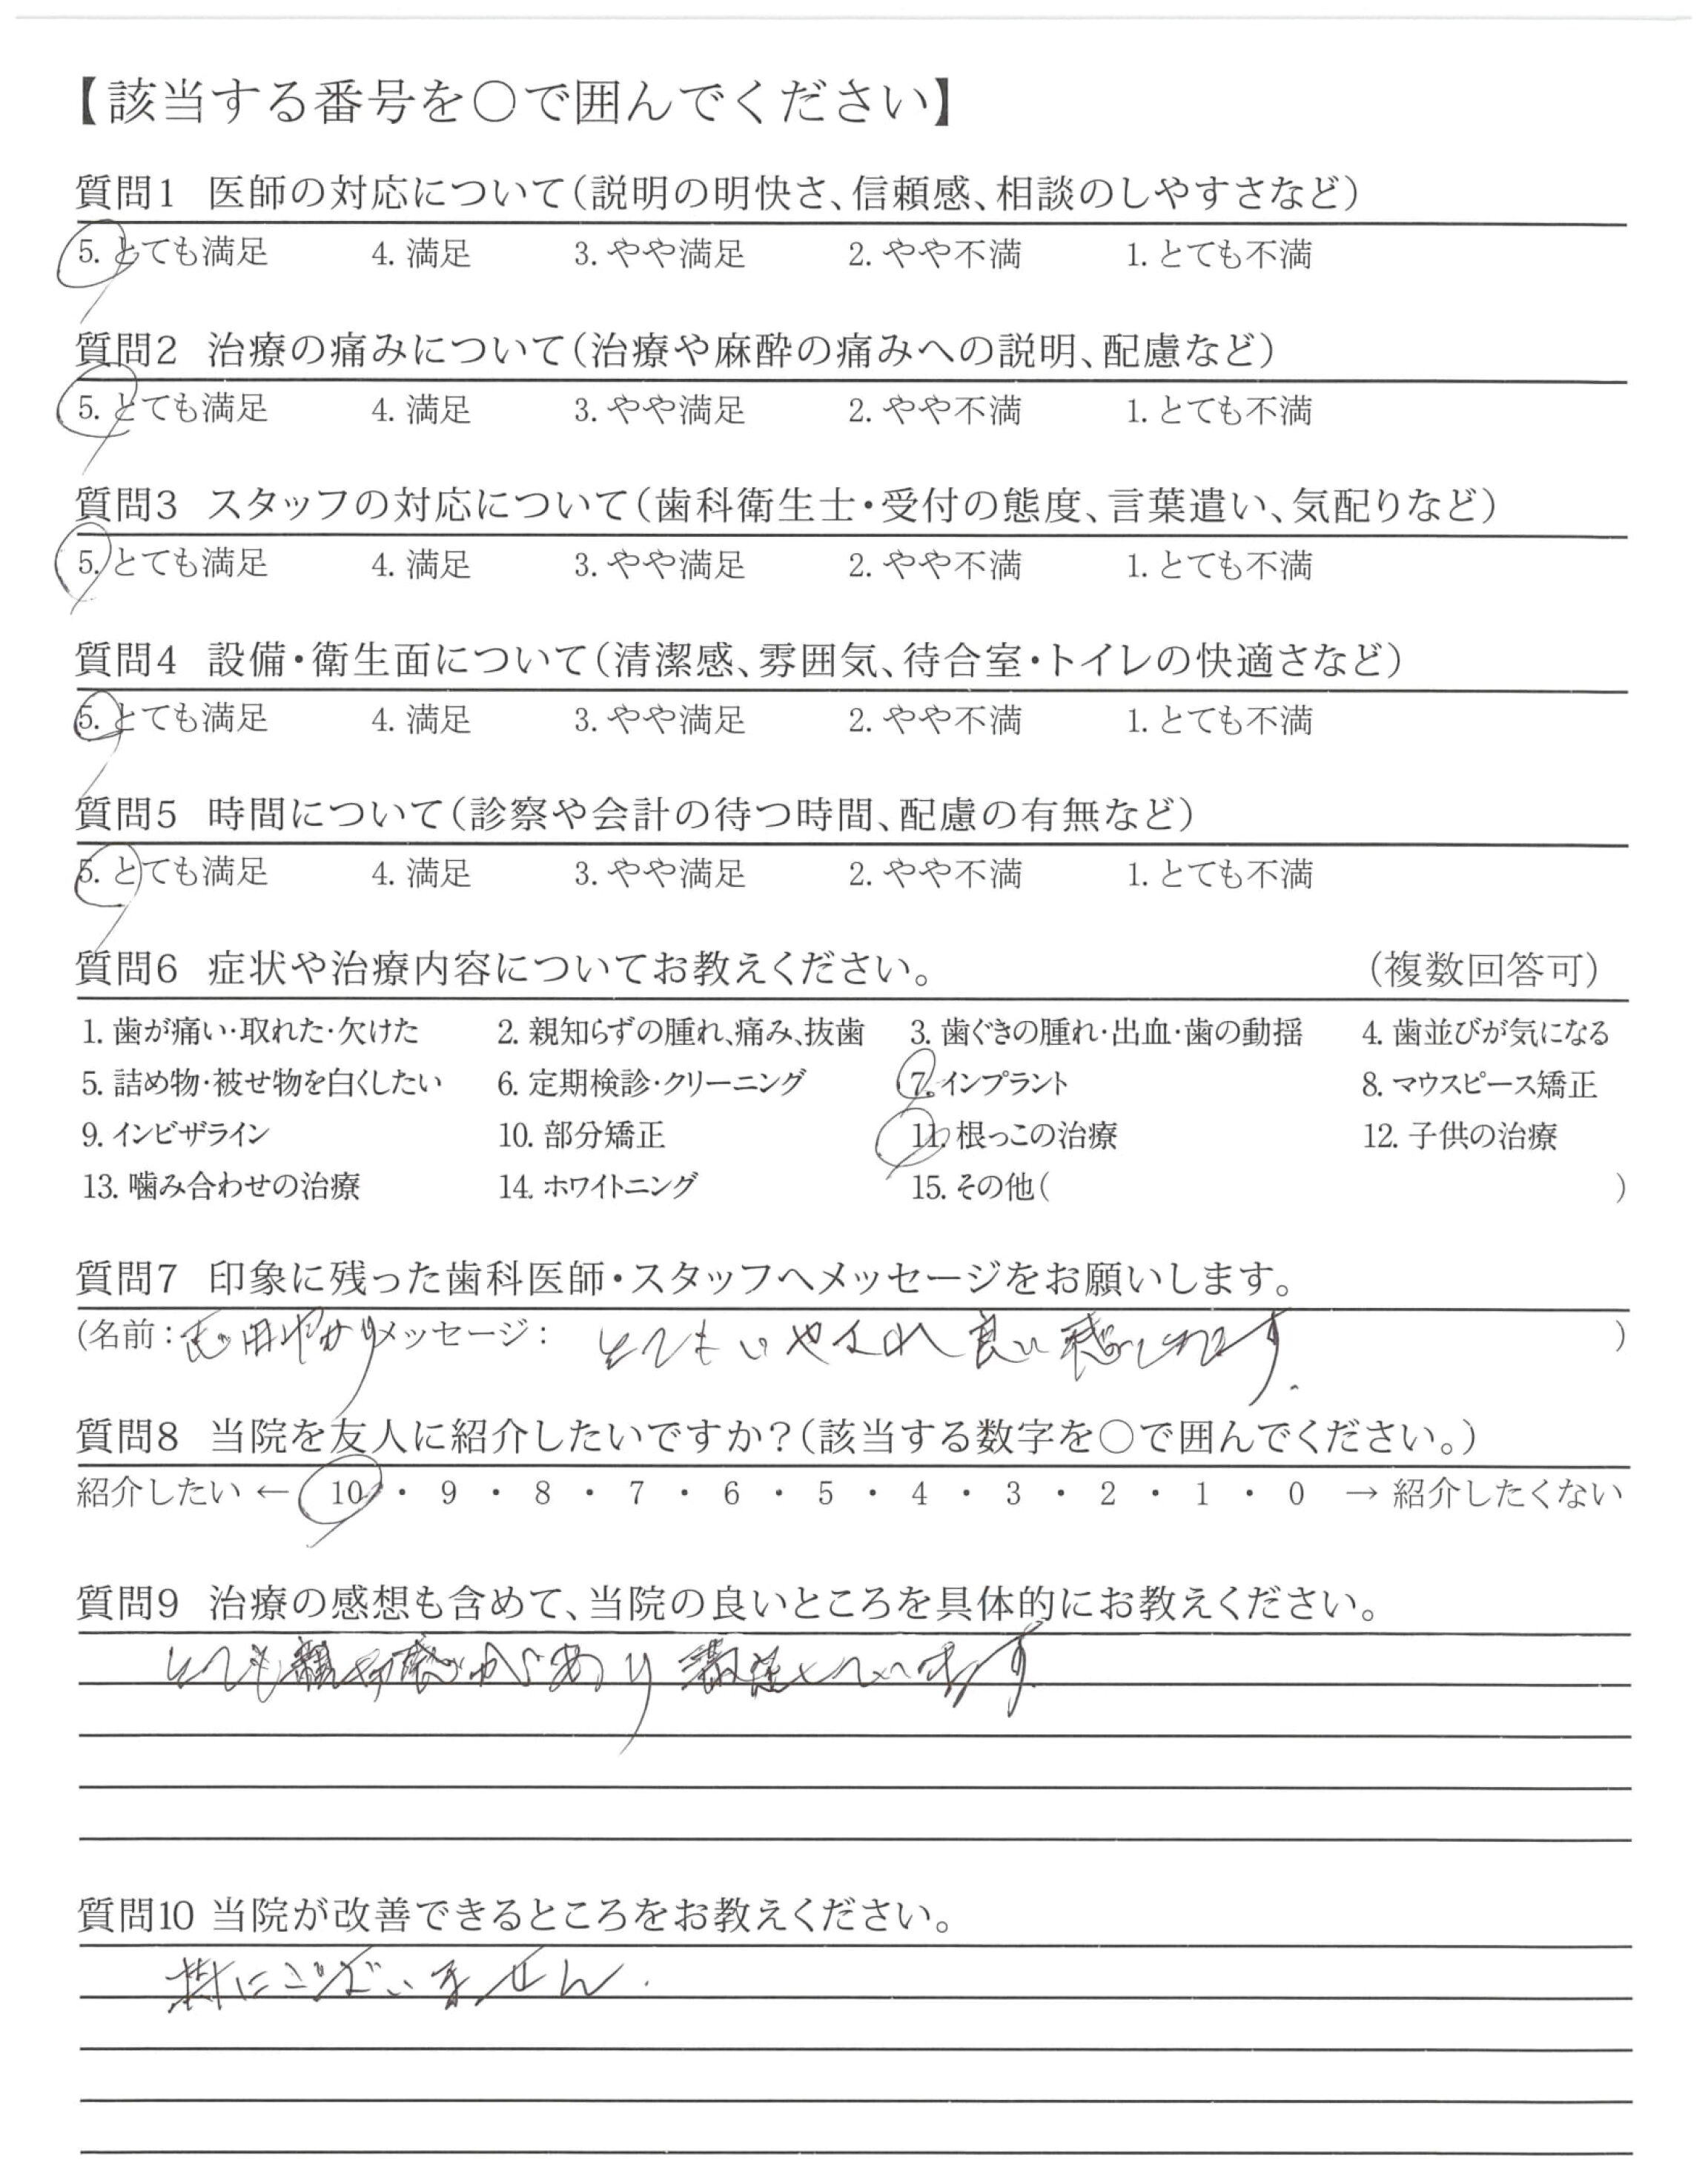 【該当する番号を○で囲んでください】
質問1 医師の対応について(説明の明快さ、信頼感、相談のしやすさなど)
5. とても満足 4. 満足 3. やや満足 2. やや不満 1. とても不満
質問2 治療の痛みについて(治療や麻酔の痛みへの説明、配慮など)
5. とても満足 4. 満足 3. やや満足 2. やや不満 1. とても不満
質問3 スタッフの対応について(歯科衛生士・受付の態度、言葉遣い、気配りなど)
5. とても満足 4. 満足 3. やや満足 2. やや不満 1. とても不満
質問4 設備・衛生面について(清潔感、雰囲気、待合室・トイレの快適さなど)
5. とても満足 4. 満足 3. やや満足 2. やや不満 1. とても不満
質問5 時間について(診察や会計の待つ時間、配慮の有無など)
5. とても満足 4. 満足 3. やや満足 2. やや不満 1. とても不満
質問6 症状や治療内容についてお教えください。 (複数回答可)
1. 歯が痛い・取れた・欠けた 2. 親知らずの腫れ、痛み、抜歯 3. 歯ぐきの腫れ・出血・歯の動揺 4. 歯並びが気になる
5. 詰め物・被せ物を白くしたい 6. 定期検診・クリーニング 7. インプラント 8. マウスピース矯正
9. インビザライン 10. 部分矯正 11. 根っこの治療 12. 子供の治療
13. 噛み合わせの治療 14. ホワイトニング 15. その他( )
質問7 印象に残った歯科医師・スタッフへメッセージをお願いします。
(名前: メッセージ: とても 良い感じ です. )
質問8 当院を友人に紹介したいですか?(該当する数字を○で囲んでください。)
紹介したい ← 10 ・ 9 ・ 8 ・ 7 ・ 6 ・ 5 ・ 4 ・ 3 ・ 2 ・ 1 ・ 0 → 紹介したくない
質問9 治療の感想も含めて、当院の良いところを具体的にお教えください。
とても親切感があり 満足しています
質問10 当院が改善できるところをお教えください。
特にございません.